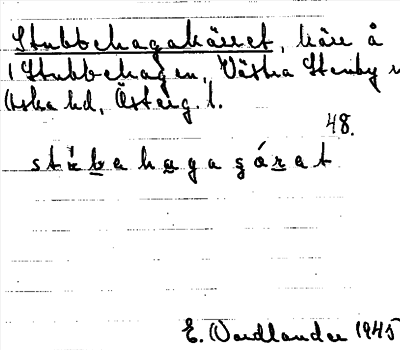 Stubbehagakärret, kärr å
Stubbehagen, Västra Stenby
Aska hd, Österg. l.
48.
stu̇bahagaȿárat
E. Nordlander 1945